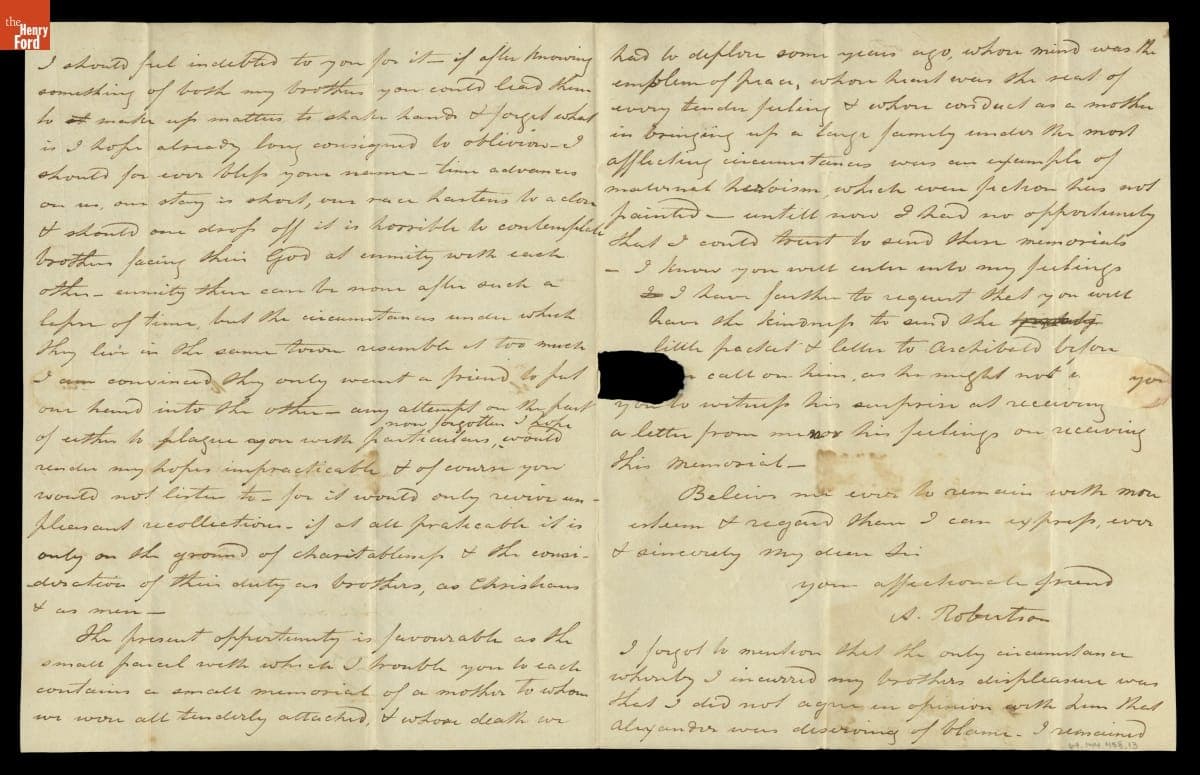 the
Henry
Ford
I should feel indebted to you for it – if after knowing
something of both my brothers you could lead them
to make up matters to shake hands & forget what
is I hope already long consigned to oblivion – I
should for ever bless your name – time advances
on us, our stay is short, our race hastens to a close
& should one drop off it is horrible to contemplate
brothers facing their God at enmity with each
other – enmity there can be none after such a
lapse of time, but the circumstances under which
they live in the same town resemble it too much
I am convinced they only want a friend to put
one hand into the other – any attempt on the part
now forgotten I hope
of either to plague you with particulars, would
render my hopes impracticable & of course you
would not listen to – for it would only revive un-
pleasant recollections – if at all praticable it is
only on the ground of charitableness & the consi-
deration of their duty as brothers, as Christians
& as men –
The present opportunity is favourable as the
small parcel with which I trouble you to each
contains a small memorial of a mother to whom
we were all tenderly attached, & whose death we
had to deplore some years ago, whose mind was the
emblem of peace, whose heart was the seat of
every tender feeling & whose conduct as a mother
in bringing up a large family under the most
afflicting circumstances was an example of
maternal heroism, which even fiction has not
painted – untill now I had no opportunity
that I could trust to send these memorials
– I know you will enter into my feelings
I have farther to request that you will
have the kindness to send the
little packet & letter to Archibald before
call on him, as he might not
you
you to witness his surprise at receiving
a letter from me nor his feelings on receiving
this memorial –
Believe me ever to remain with more
esteem & regard than I can express, ever
& sincerely my dear Sir
your affectionate friend
A. Robertson
I forgot to mention that the only circumstance
whereby I incurred my brothers displeasure was
that I did not agree in opinion with him that
Alexander was deserving of blame – I remained